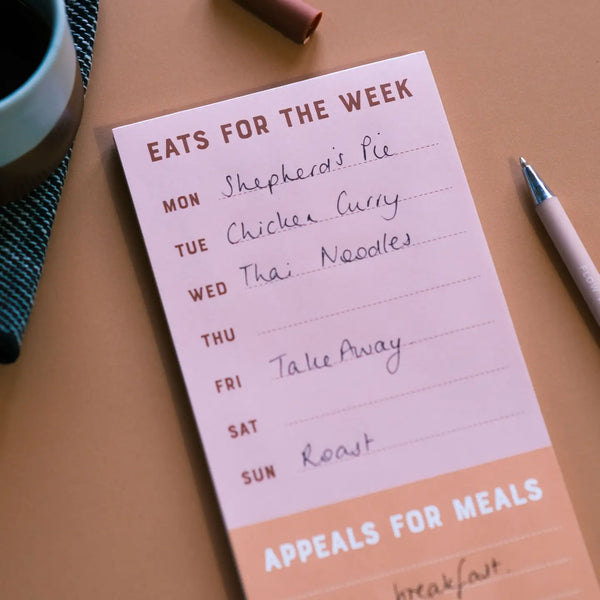 EATS FOR THE WEEK
MON Shepherd's Pie
TUE Chicken Curry
WED Thai Noodles
THU
FRI Take Away
SAT
SUN Roast
APPEALS FOR MEALS
breakfast.
FLOW